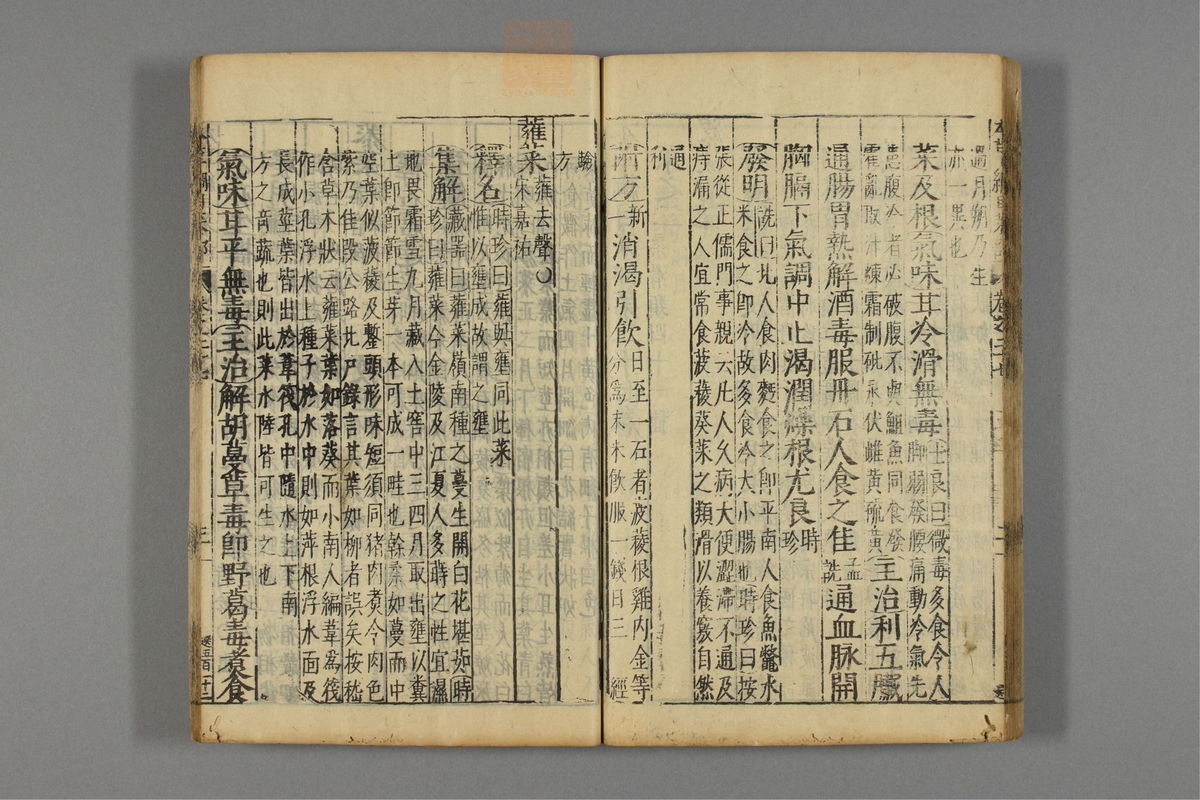 過月朔乃生
亦一異也
菜及根氣味甘冷滑無毒士良曰微毒多食令人
脚弱發腰痛動冷氣先
患腹冷者必破腹不與䱇魚同食發
霍亂取汁煉霜制砒汞伏雌黃硫黃主治利五臟
通腸胃熱解酒毒服丹石人食之佳孟
詵通血脉開
胸膈下氣調中止渴潤燥根尤良時
珍
發明詵曰北人食肉麪食之即平南人食魚鼈水
米食之即冷故多食冷大小腸也時珍曰按
張從正儒門事親云凡人久病大便澀滯不通及
痔漏之人宜常食菠薐葵菜之類滑以養竅自然
通
利
附方新
一消渴引飲日至一石者菠薐根雞内金等
分爲末米飲服一錢日三
經
驗
方
蕹菜蕹去聲
宋嘉祐
釋名時珍曰蕹與壅同此菜
惟以壅成故謂之壅
集解藏器曰蕹菜嶺南種之蔓生開白花堪茹時
珍曰蕹菜今金陵及江夏人多蒔之性宜濕
地畏霜雪九月藏入土窖中三四月取出壅以糞
土即節節生芽一本可成一畦也幹柔如蔓而中
空葉似菠薐及鏨頭形味短須同猪肉煑令肉色
紫乃佳段公路北户錄言其葉如柳者誤矣按嵇
含草木狀云蕹菜葉如落葵而小南人編葦爲筏
作小孔浮水上種子於水中則如萍根浮水面及
長成莖葉皆出於葦筏孔中隨水上下南
方之奇蔬也則此菜水陸皆可生之也
氣味甘平無毒主治解胡蔓草毒即野葛毒煑食